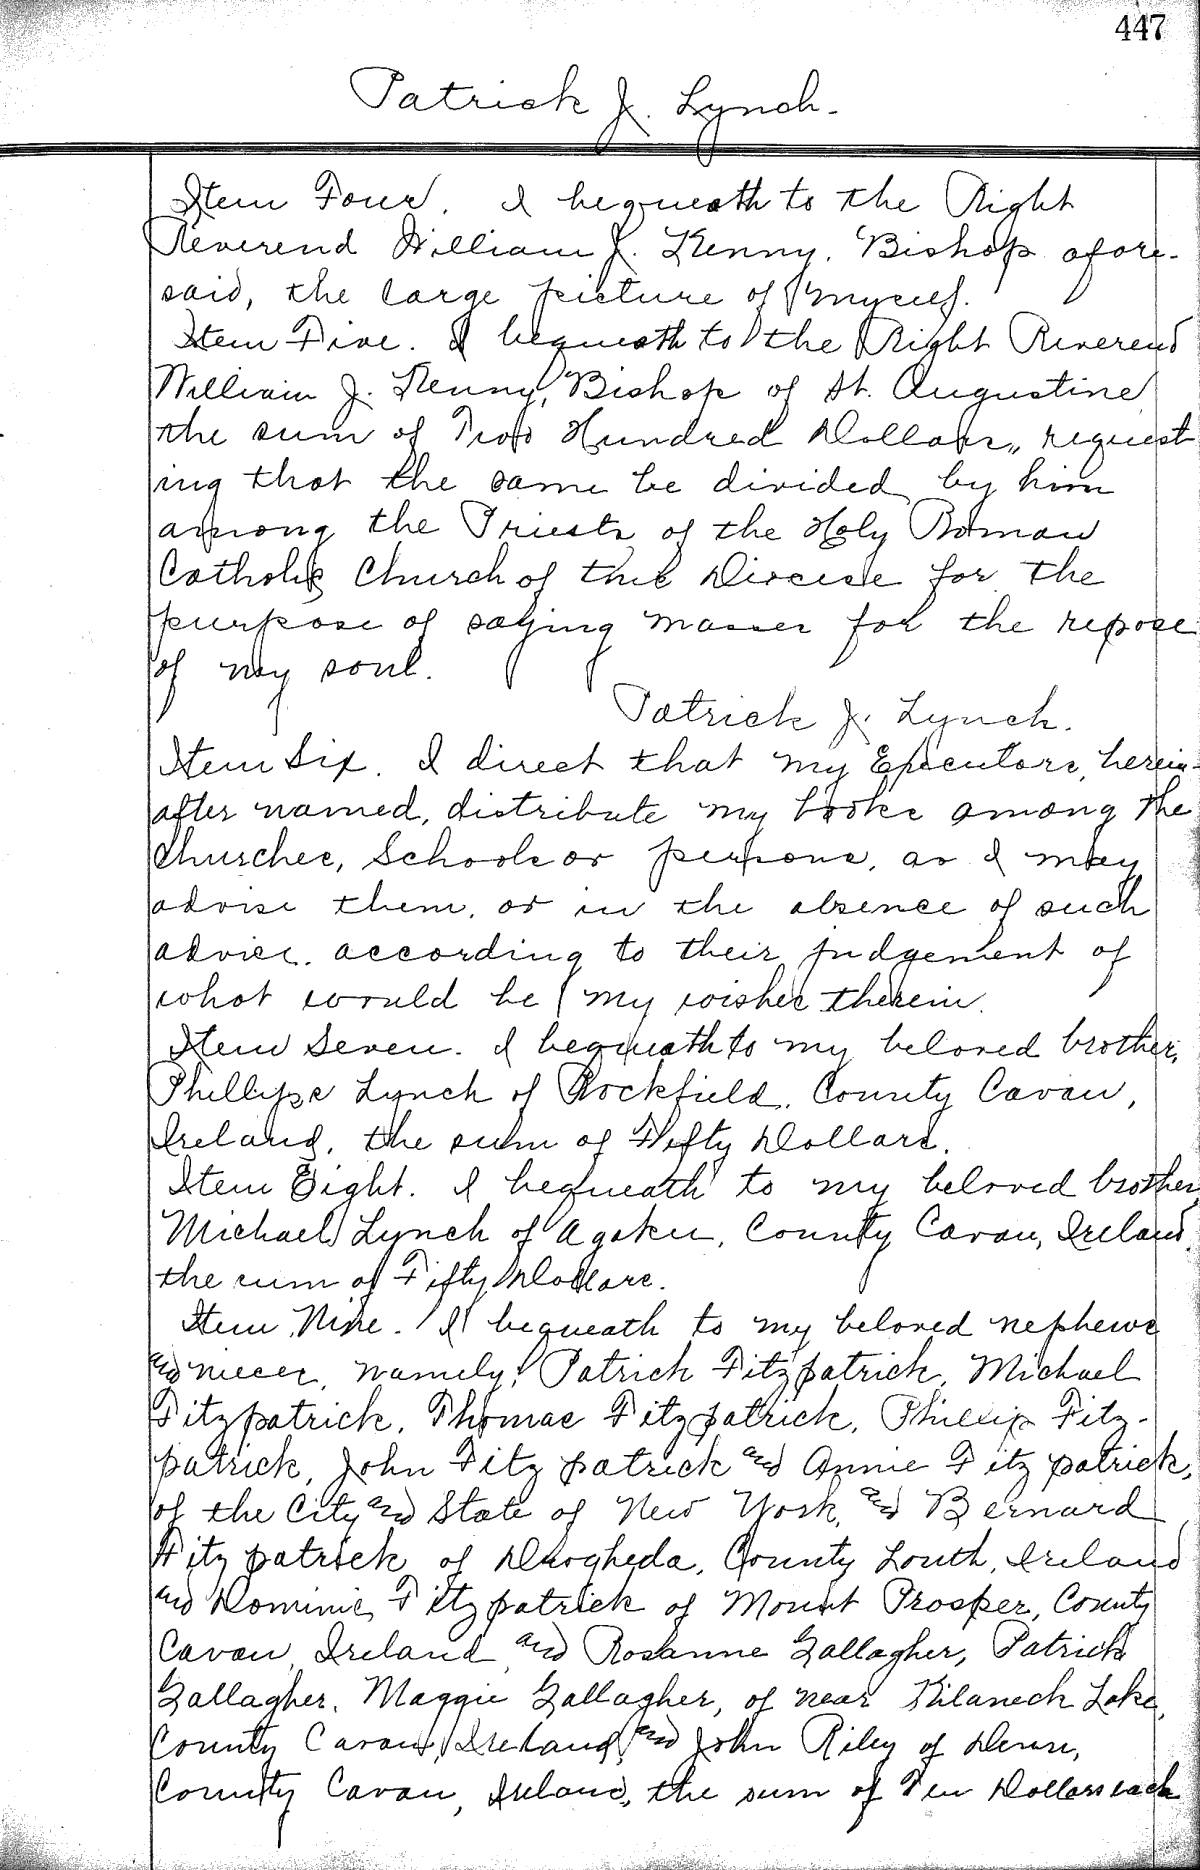 447
Patrick J. Lynch.
Item Four. I bequeath to the Right
Reverend William J. Kenny, Bishop afore-
said, the large picture of myself.
Item Five. I bequeath to the Right Reverend
William J. Kenny, Bishop of St. Augustine
the sum of Two Hundred Dollars, request
ing that the same be divided by him
among the Priests of the Holy Roman
Catholic Church of this Diocese for the
purpose of saying masses for the repose
of my soul.
Patrick J. Lynch.
Item Six. I direct that my Executors, herein-
after named, distribute my books among the
Churches, Schools or persons, as I may
advise them, or in the absence of such
advice, according to their judgement of
what would be my wishes therein.
Item Seven. I bequeath to my beloved brother,
Phillipe Lynch of Rockfield, County Cavan,
Ireland, the sum of Fifty Dollars.
Item Eight. I bequeath to my beloved brother
Michael Lynch of County Cavan, Ireland,
the sum of Fifty Dollars.
Item Nine. I bequeath to my beloved nephews
and nieces, namely: Patrick Fitzpatrick, Michael
Fitzpatrick, Thomas Fitzpatrick, Phillip Fitz-
patrick, John Fitzpatrick and Annie Fitzpatrick,
of the City and State of New York, and Bernard
Fitzpatrick of Drogheda, County Louth, Ireland
and Dominic Fitzpatrick of Mount Prosper, County
Cavan, Ireland, and Rosanne Gallagher, Patrick
Gallagher, Maggie Gallagher, of near Kilaneck Lake,
County Cavan, Ireland, and John Riley of
County Cavan, Ireland, the sum of Ten Dollars each